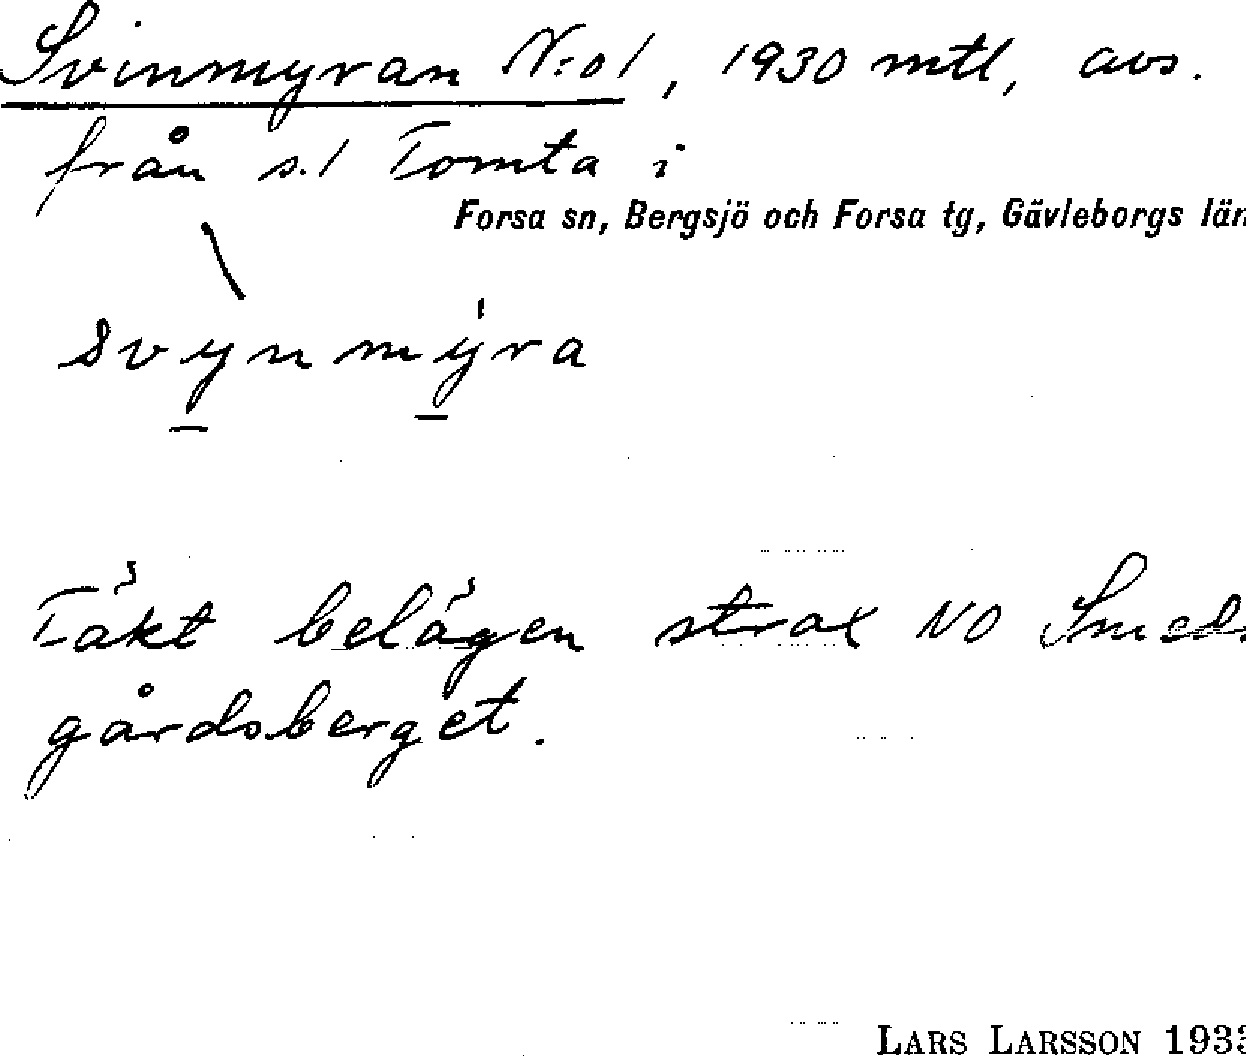 Svinmyran N:o 1, 1930 mtl, avs.
från s. 1 Tomta i
Forsa sn, Bergsjö och Forsa tg, Gävleborgs län
\
svynmy̍ra
Täkt belägen strax NO Smeds
gårdsberget.
LARS LARSSON 1933